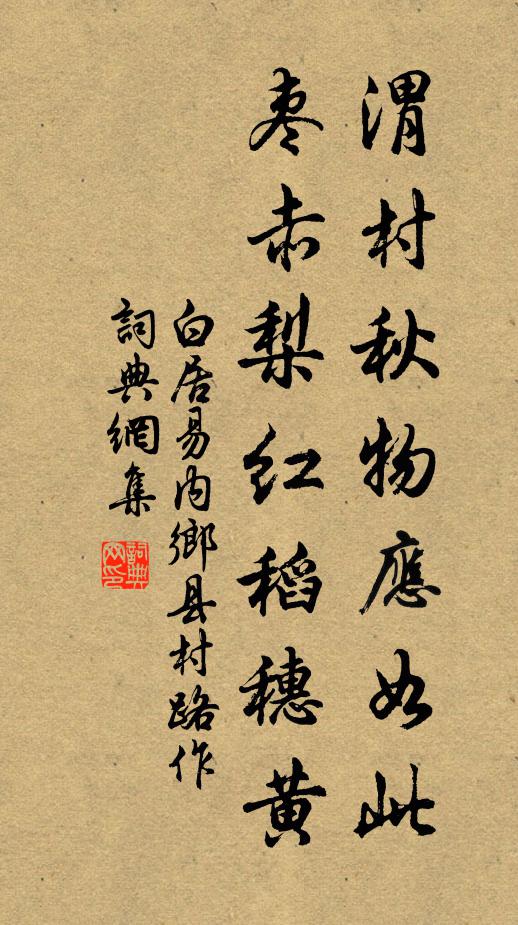 渭村秋物應如此
枣赤梨紅稻穗黄
白居易内鄉县村路作
詞典網集
詞典
网印